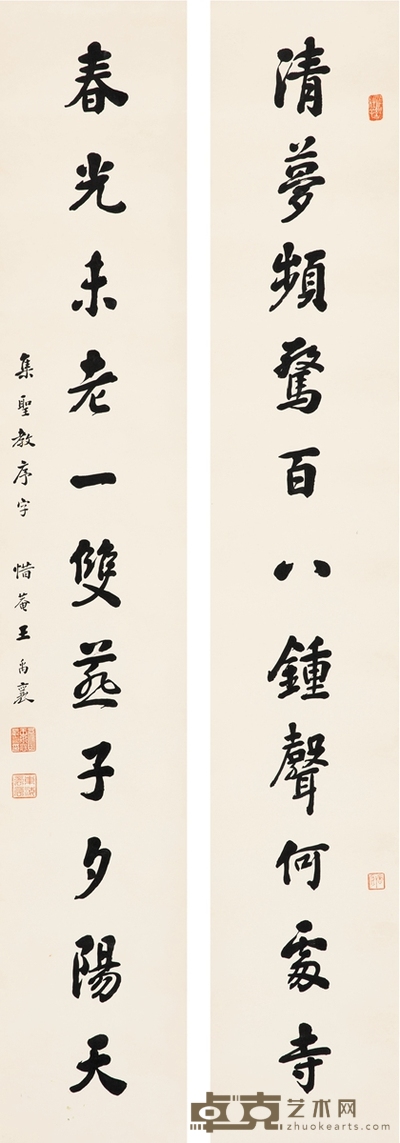 清夢頻驚百八鍾聲何處寺
春光未老一雙燕子夕陽天
集聖教序字 惜菴王禹襄
卓克艺术网
zhuokearts.com